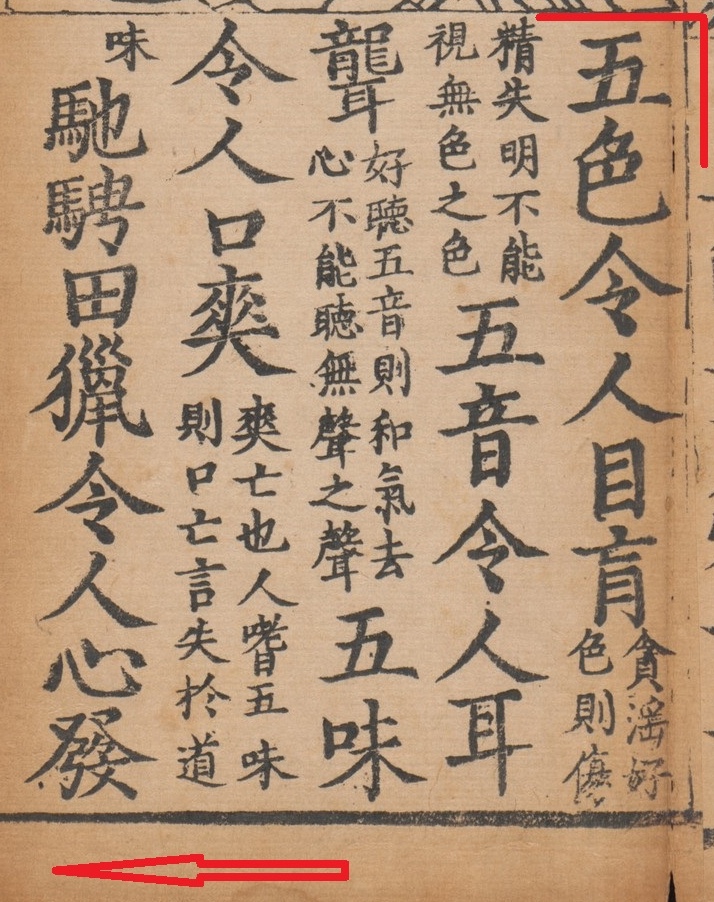 五色令人目盲貪淫好色則傷
精失明不能視無色之色五音令人耳
聾好聽五音則和氣去心不能聽無聲之聲五味
令人口爽爽亡也人嗜五味則口亡言失扵道
味馳騁田獵令人心發